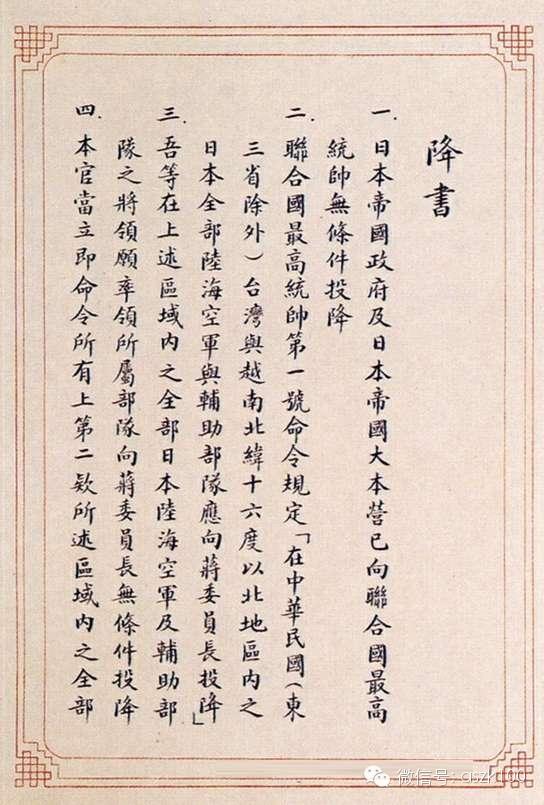 降書
一.日本帝國政府及日本帝國大本營已向聯合國最高
統帥無條件投降
二.聯合國最高統帥第一號命令規定「在中華民國(東
三省除外)台灣與越南北緯十六度以北地區內之
日本全部陸海空軍與輔助部隊應向蔣委員長投降」
三.吾等在上述區域內之全部日本陸海空軍及輔助部
隊之將領願率領所屬部隊向蔣委員長無條件投降
四.本官當立即命令所有上第二欵所述區域內之全部
微信号: